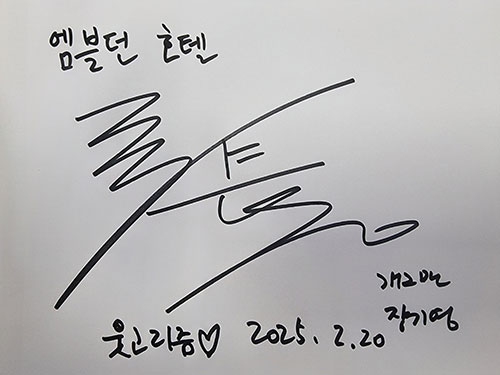 엠블던 호텔
개그맨
장기영
웃고라즘♡ 2025. 2. 20